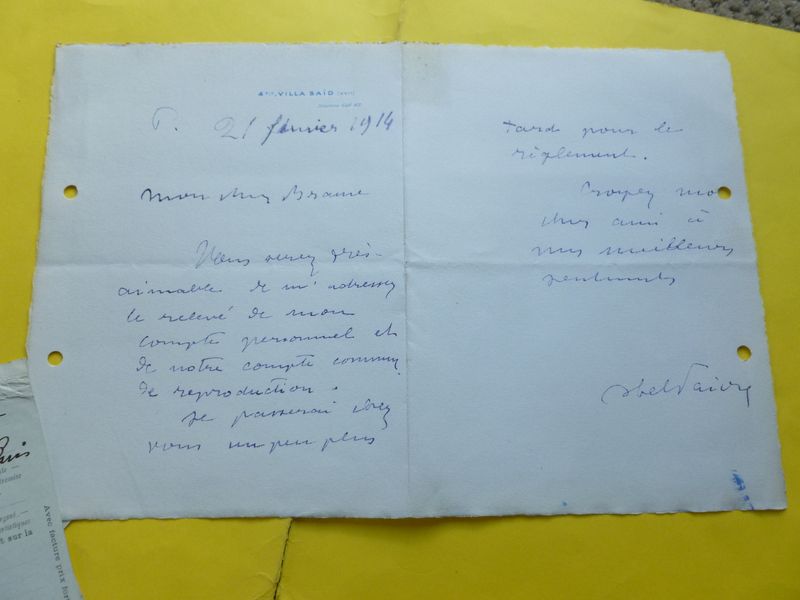 VILLA SAÏD
21 février 1914
mon cher Brame
Vous serez très
aimable de m'adresser
le relevé de mon
compte personnel et
de notre compte commun
de reproduction.
Je passerai chez
vous un peu plus
tard pour le
règlement.
Croyez moi
cher ami à
mes meilleurs
sentiments
Abel Faivre
Paris
et sur la
Avec facture prix